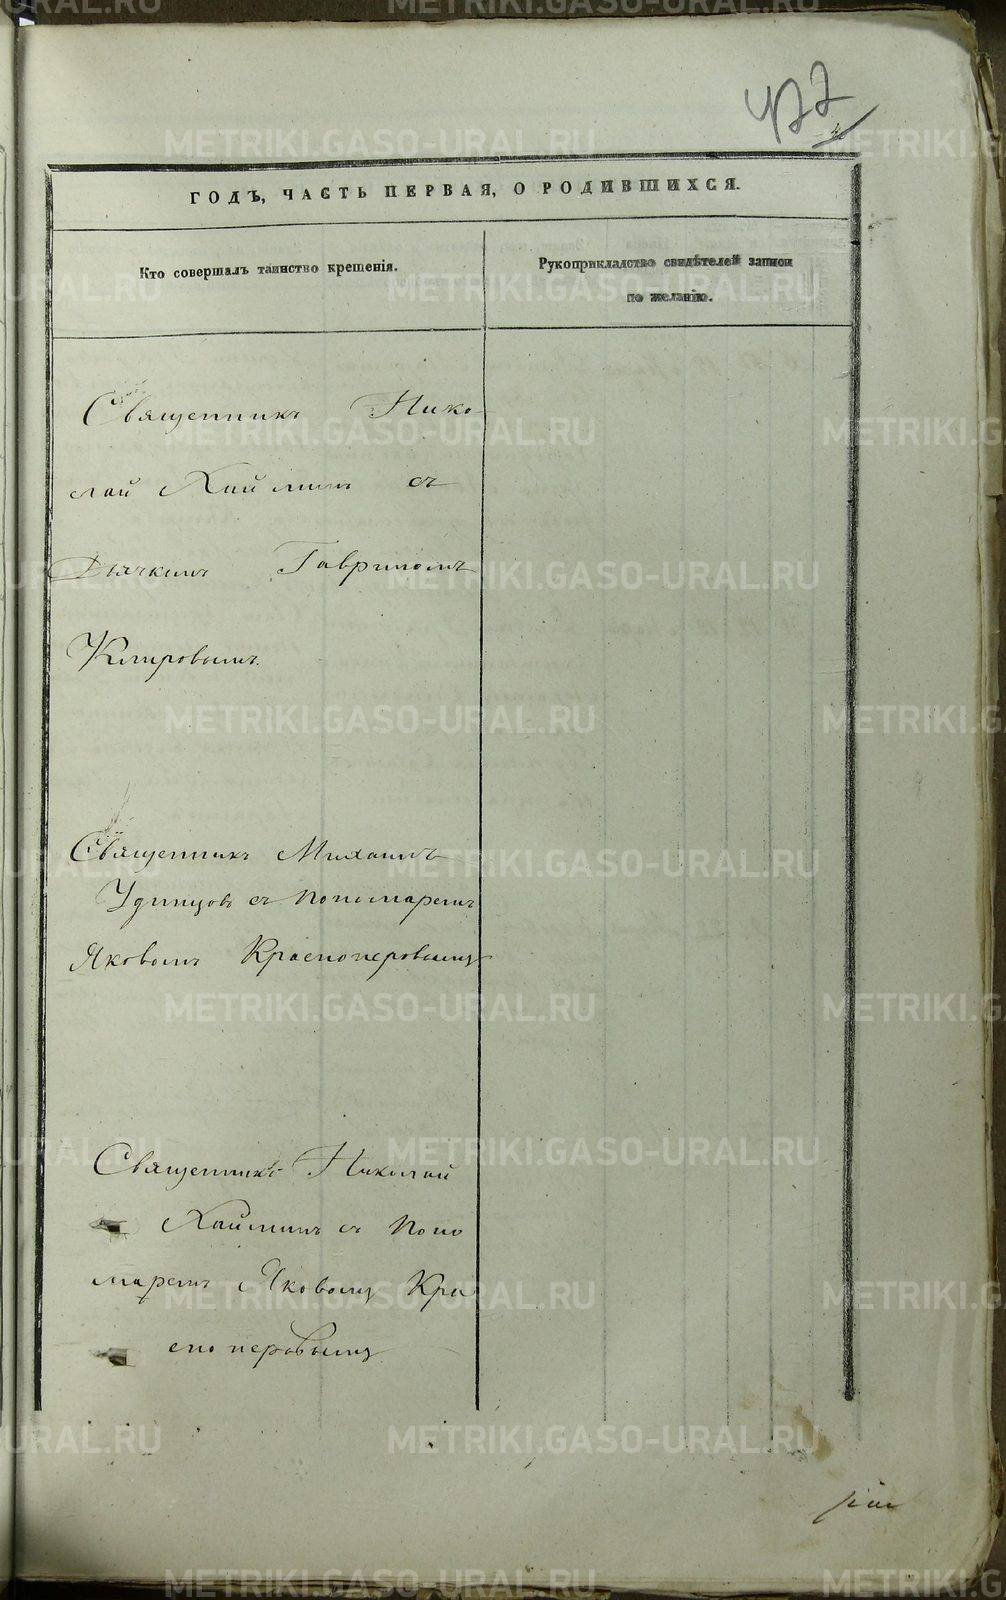 422
ГОДЪ, ЧАСТЬ ПЕРВАЯ, О РОДИВШИХСЯ.
Кто совершалъ таинство крещенія.
Рукоприкладство свидѣтелей записи
по желанію.
Священникъ Нико
лай Хаймин съ
Дьячкомъ Гавриломъ
Кпировымъ.
Священникъ Михаилъ
Удинцовъ съ пономаремъ
Яковомъ Красноперовымъ
Священникъ Николай
Хайминъ съ поно
маремъ Яковомъ Кра
сноперовымъ
METRIKI.GASO-URAL.RU